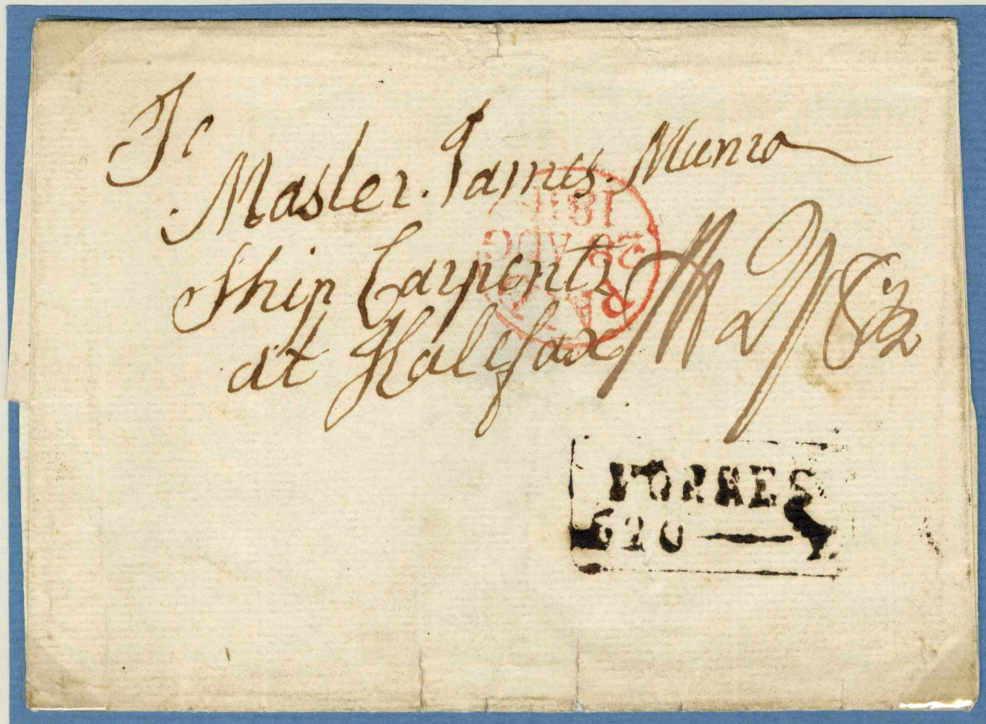 To
Master. James. Munro
Ship Carpentr
at Halifax
2/
PAID
28 AUG
181
FORRES
620